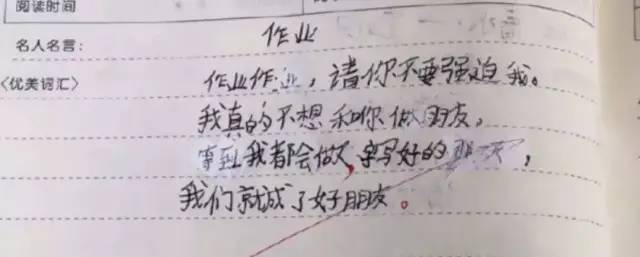 阅读时间
作业
名人名言:
〈优美词汇〉
作业作业，请你不要强迫我。
我真的不想和你做朋友，
等到我都会做，字写好的那一天，
我们就成了好朋友。